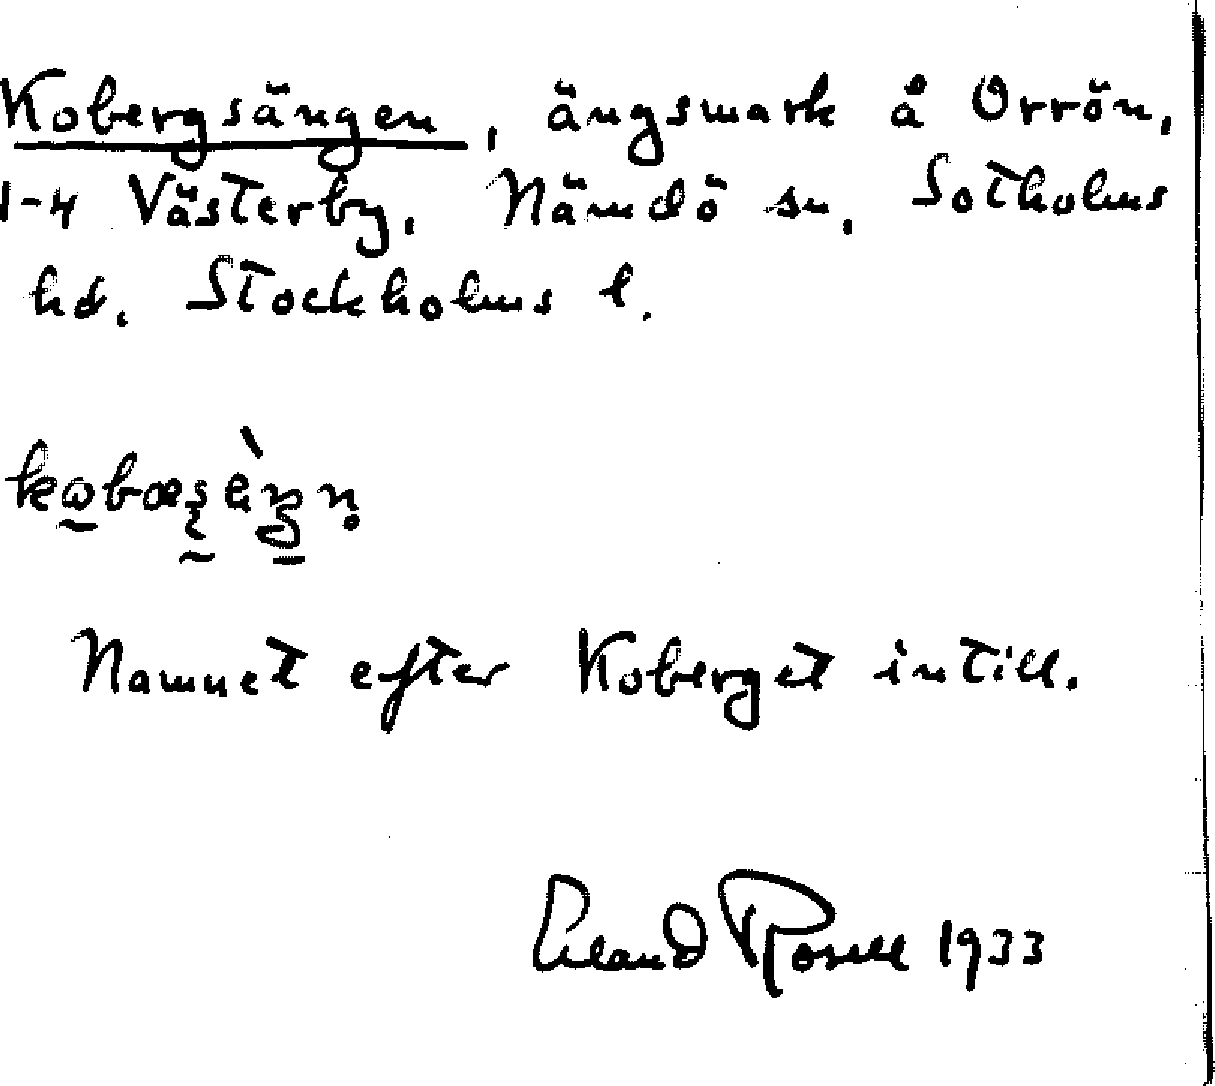 Kobergsängen, ängsmark å Orrön,
1-4 Västerby, Nämdö sn, Sotholms
hd. Stockholms l.
Namnet efter Koberget intill.
Erland Rosell 1933